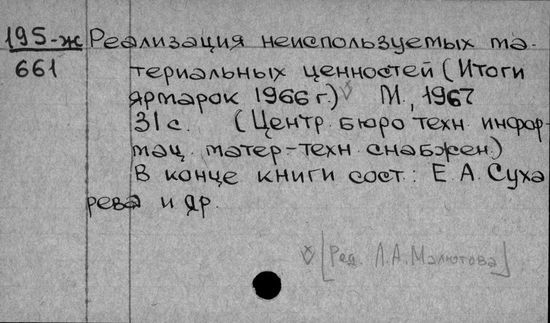 195-ж Реализация неиспользуемых ма-
661 териальных ценностей (Итоги
ярмарок 1966 г.) М., 1967
31 с. (Центр. бюро техн. инфор-
мац. матер-техн снабжен.)
В конце книги сост.: Е. А. Суха
рева и др.
[Ред. Л. А. Малютова]